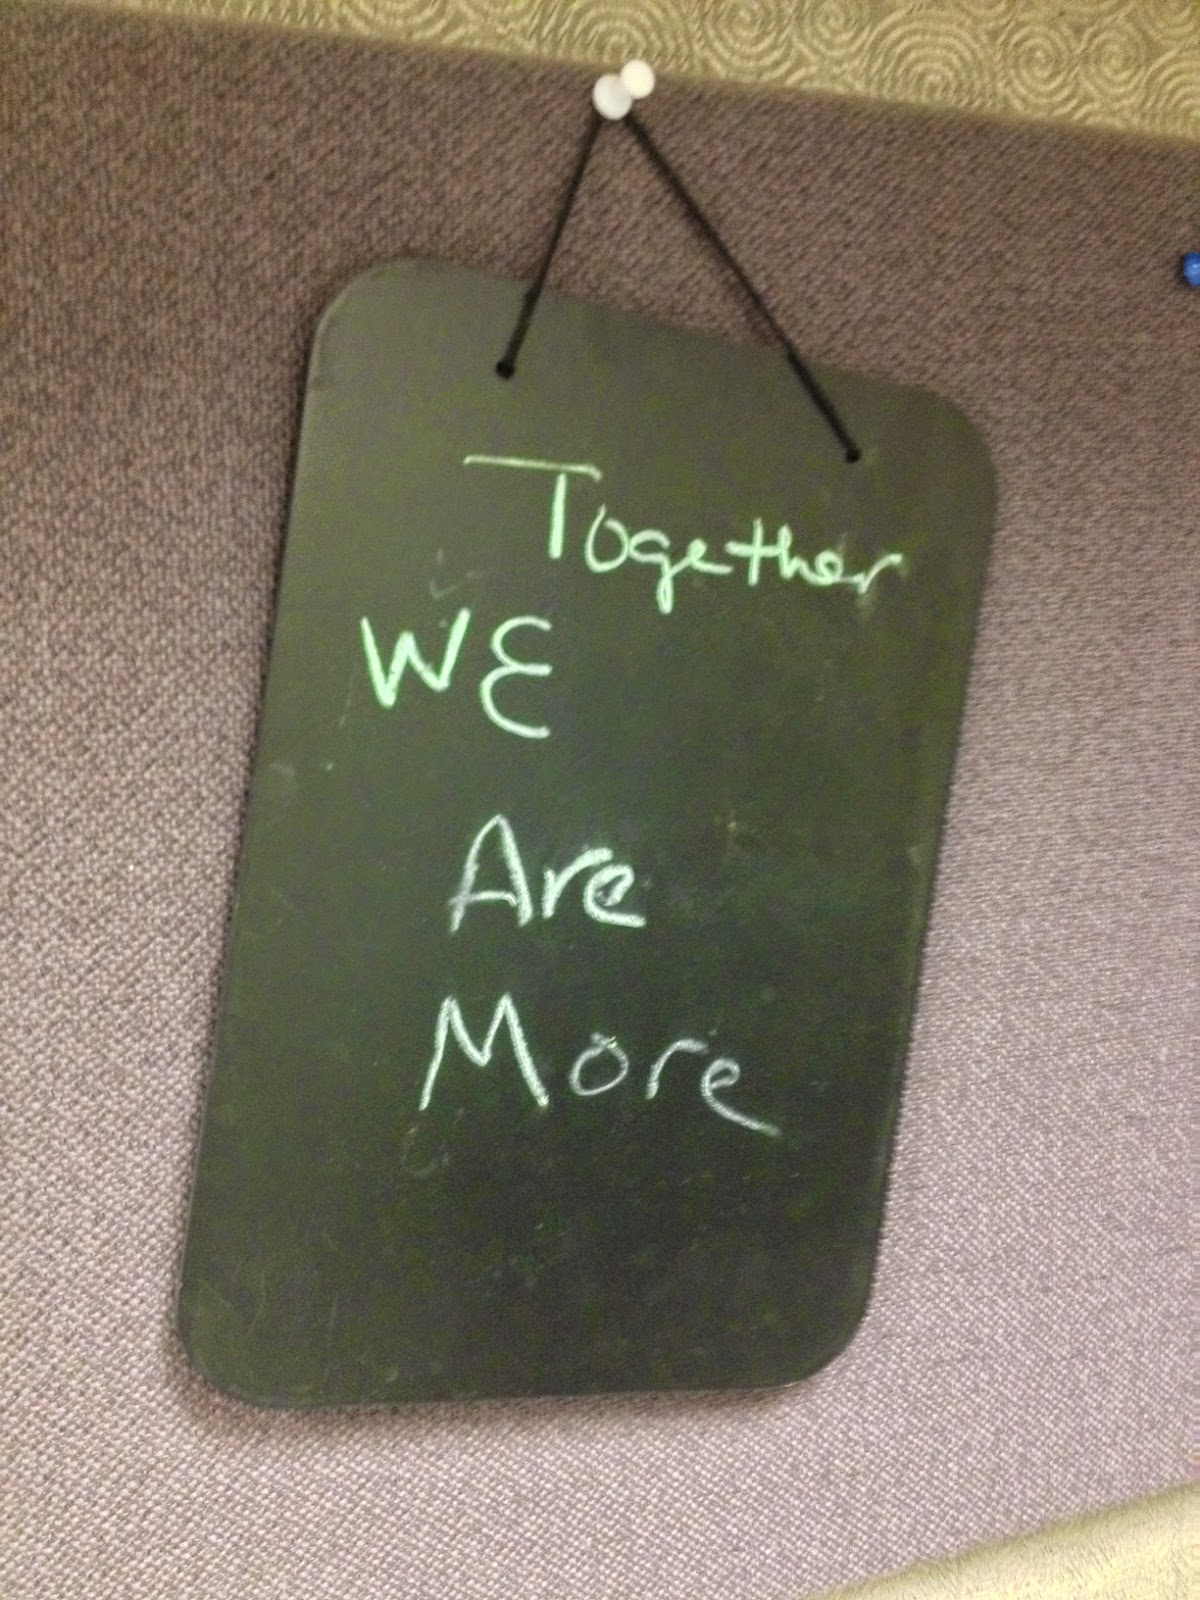 Together
WE
Are
More